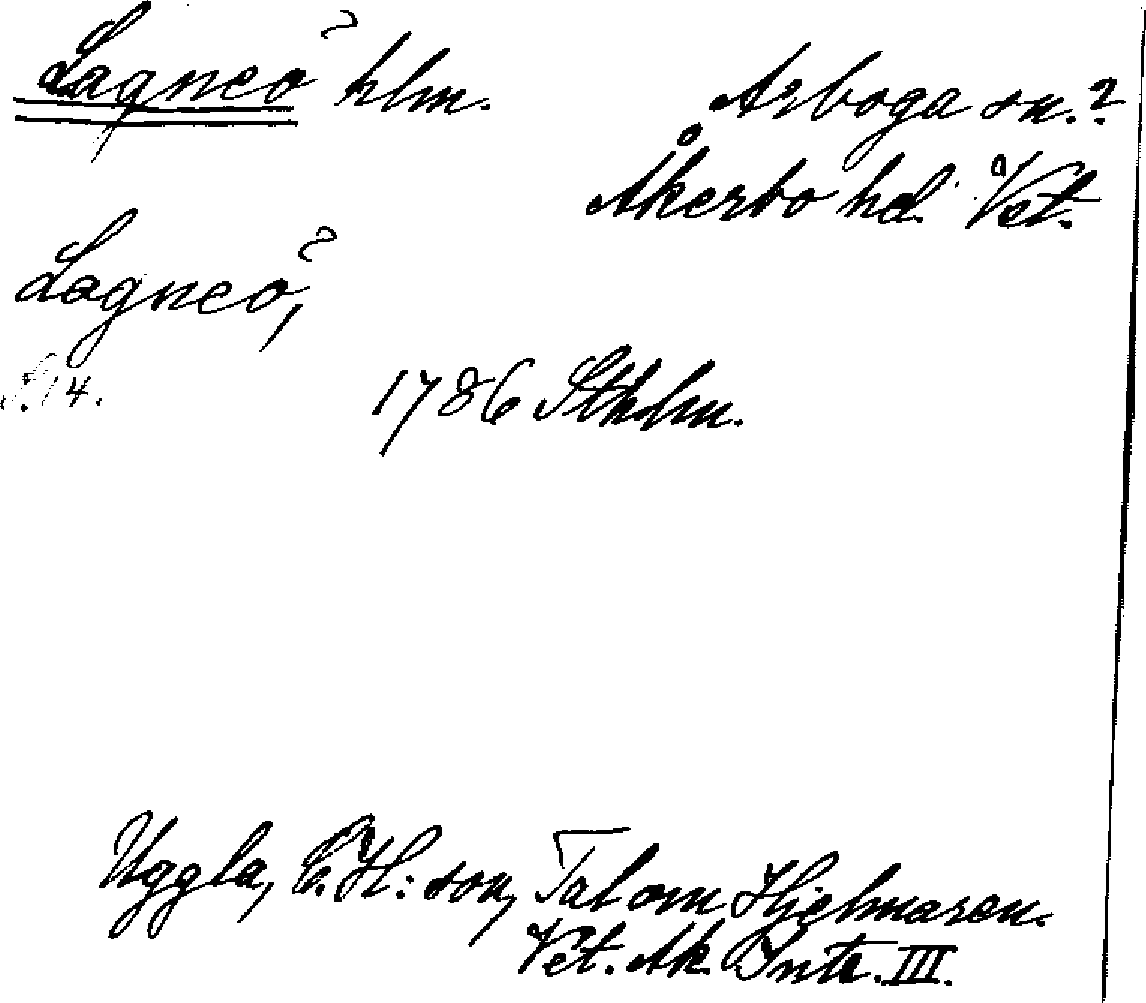 Lagneö hlm.
Arboga sn.?
Åkerbo hd. Vet.
Lagneö,
S. 14.
1786 Sthlm.
Uggla, C. H:son, Tal om Hjelmaren.
Vet. Ak. Intr. III.